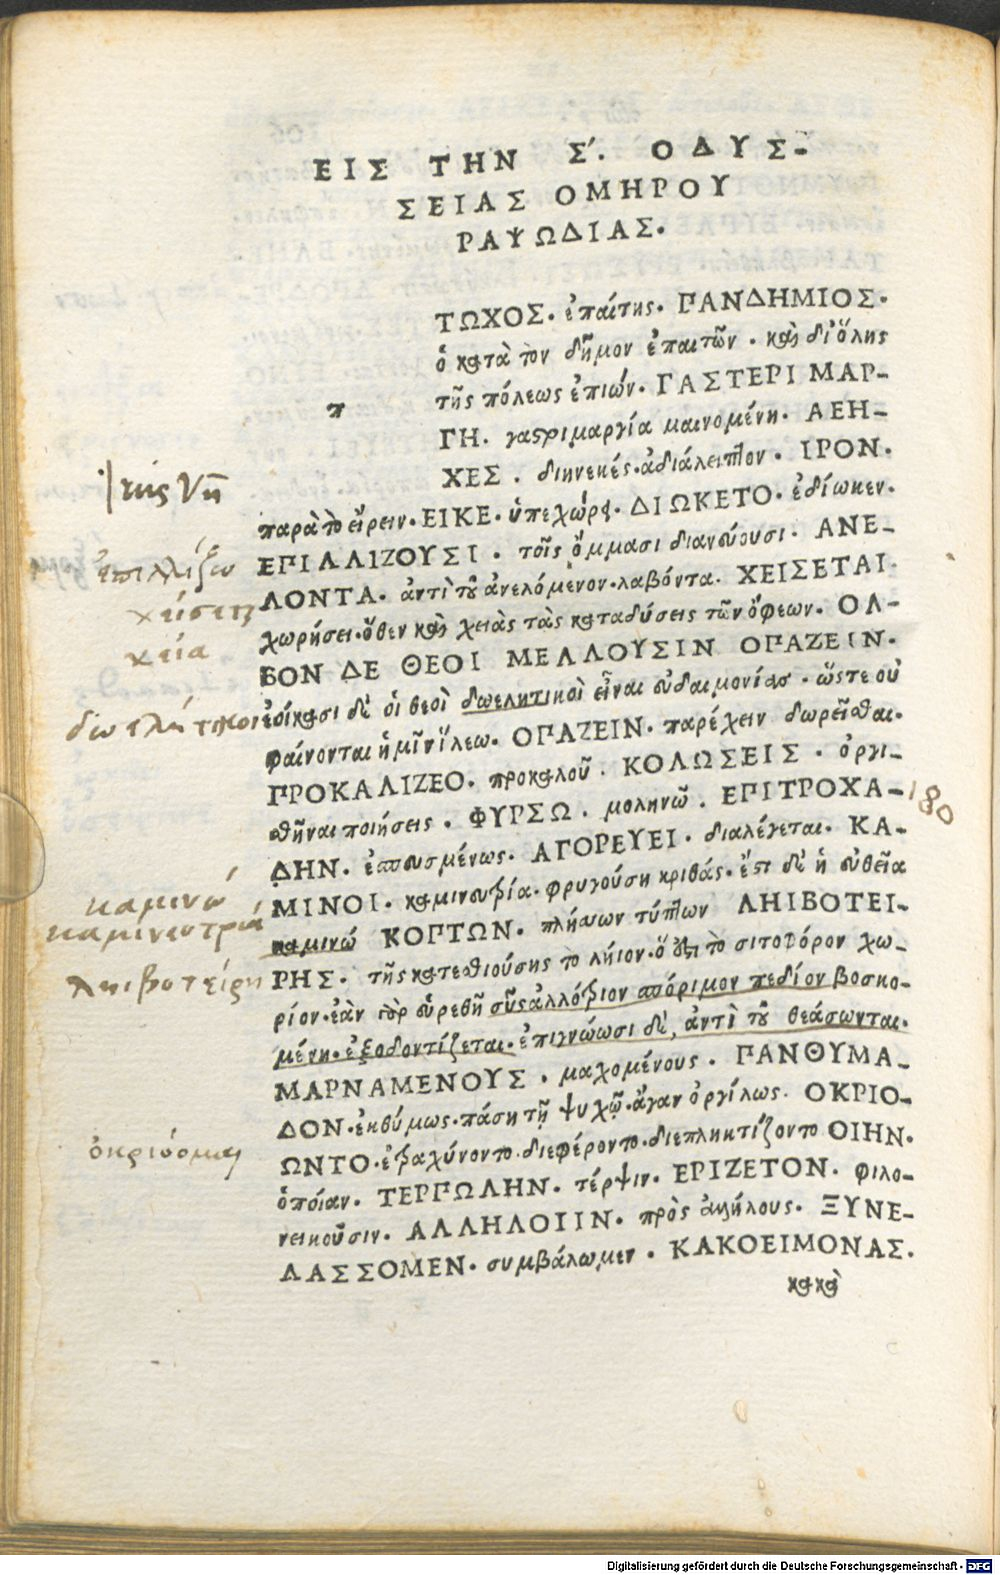 ΕΙΣ ΤΗΝ Σ΄. ΟΔΥΣ-
ΣΕΙΑΣ ΟΜΗΡΟΥ
ΡΑΨΩΔΙΑΣ.
π
ΤΩΧΟΣ. ἐπαίτης. ΠΑΝΔΗΜΙΟΣ.
ὁ κατὰ τὸν δῆμον ἐπαιτῶν. καὶ δι' ὅλης
τῆς πόλεως ἐπιών. ΓΑΣΤΕΡΙ ΜΑΡ-
ΓΗ. γαστριμαργία μαινομένη. ΑΕΗ-
ΧΕΣ. διηνεκές. ἀδιάλειπτον. ΙΡΟΝ.
παρὰ τὸ εἴρειν. ΕΙΚΕ. ὑπεχώρει. ΔΙΩΚΕΤΟ. ἐδίωκεν.
ΕΠΙΛΛΙΖΟΥΣΙ. τοῖς ὄμμασι διανεύουσι. ΑΝΕ-
ΛΟΝΤΑ. ἀντὶ τοῦ ἀνελόμενον. λαβόντα. ΧΕΙΣΕΤΑΙ.
χωρήσει. ὅθεν καὶ χειὰς τὰς καταδύσεις τῶν ὄφεων. ΟΛ-
ΒΟΝ ΔΕ ΘΕΟΙ ΜΕΛΛΟΥΣΙΝ ΟΠΑΖΕΙΝ.
ἐοίκασι δὲ οἱ θεοὶ δωελητικοὶ εἶναι εὐδαιμονίας. ὥστε οὐ
φαίνονται ἡμῖν ἵλεω. ΟΠΑΖΕΙΝ. παρέχειν δωρεῖσθαι.
ΠΡΟΚΑΛΙΖΕΟ. προκαλοῦ. ΚΟΛΩΣΕΙΣ. ὀργι-
σθῆναι ποιήσεις. ΦΥΡΣΩ. μολυνῶ. ΕΠΙΤΡΟΧΑ-
ΔΗΝ. ἐσπευσμένως. ΑΓΟΡΕΥΕΙ. διαλέγεται. ΚΑ-
ΜΙΝΟΙ. καμινευτρία. φρυγούση κριθάς. ἔστι δὲ ἡ εὐθεῖα
καμινώ ΚΟΠΤΩΝ. πλήσσων τύπτων ΛΗΙΒΟΤΕΙ-
ΡΗΣ. τῆς κατεσθιούσης τὸ λήιον. ὅ ἐστι τὸ σιτοφόρον χω-
ρίον. ἐὰν γὰρ εὑρεθῆ σῦς ἀλλότριον σπόριμον πεδίον βοσκο-
μένη. ἐξοδοντίζεται. ἐπιγνώωσι δέ, ἀντὶ τοῦ θεάσωνται.
ΜΑΡΝΑΜΕΝΟΥΣ. μαχομένους. ΠΑΝΘΥΜΑ-
ΔΟΝ. ἐκθύμως. πάση τῇ ψυχῇ. ἄγαν ὀργίλως. ΟΚΡΙΟ-
ΩΝΤΟ. ἐτραχύνοντο. διεφέροντο. διεπληκτίζοντο ΟΙΗΝ.
ὁποίαν. ΤΕΡΠΩΛΗΝ. τέρψιν. ΕΡΙΖΕΤΟΝ. φιλο-
νεικοῦσιν. ΑΛΛΗΛΟΙΙΝ. πρὸς ἀλλήλους. ΞΥΝΕ-
ΛΑΣΣΟΜΕΝ. συμβάλωμεν. ΚΑΚΟΕΙΜΟΝΑΣ.
κακὰ
ἐπιλλίζω
χείσεται
χειά
δωελητικοι
180
καμινώ
καμινευτρία
ληιβοτείρη
ὀκριόομαι
Digitalisierung gefördert durch die Deutsche Forschungsgemeinschaft - DFG